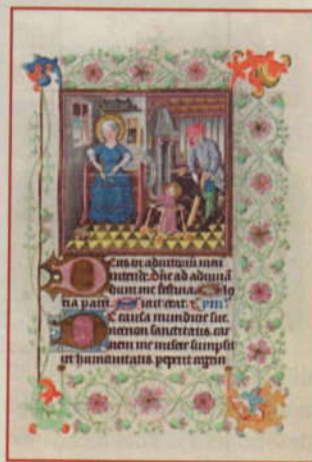 Deus in adiutoriu meu
intende. Dñe ad adiuuã
dum me festina. Glo
ria patri. sicut erat.
causa mundicie sue
necnon sanctitatis. car
nem me misere sumpsit
humanitatis. peperit